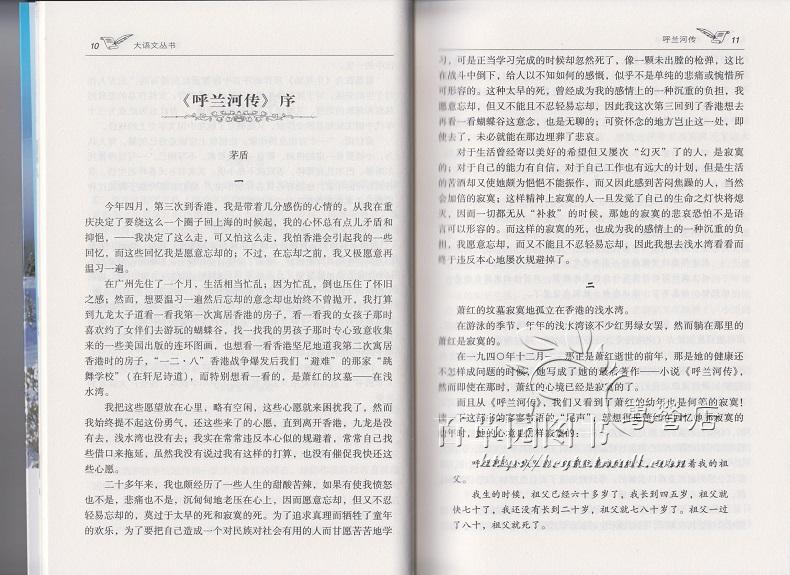 10 大语文丛书
《呼兰河传》序
茅盾
一
今年四月，第三次到香港，我是带着几分感伤的心情的。从我在重
庆决定了要绕这么一个圈子回上海的时候起，我的心怀总有点儿矛盾和
抑悒，——我决定了这么走，可又怕这么走，我怕香港会引起我的一些
回忆，而这些回忆我是愿意忘却的；不过，在忘却之前，我又极愿意再
温习一遍。
在广州先住了一个月，生活相当忙乱；因为忙乱，倒也压住了怀旧
之感；然而，想要温习一遍然后忘却的意念却也始终不曾抛开，我打算
到九龙太子道看一看我第一次寓居香港的房子，看一看我的女孩子那时
喜欢约了女伴们去游玩的蝴蝶谷，找一找我的男孩子那时专心致意收集
来的一些美国出版的连环图画，也想看一看香港坚尼地道我第二次寓居
香港时的房子，“一二·八”香港战争爆发后我们“避难”的那家“跳
舞学校”（在轩尼诗道），而特别想看一看的，是萧红的坟墓——在浅
水湾。
我把这些愿望放在心里，略有空闲，这些心愿就来困扰我了，然而
我始终提不起这份勇气，还这些未了的心愿，直到离开香港，九龙是没
有去，浅水湾也没有去；我实在常常违反本心似的规避着，常常自己找
些借口来拖延，虽然我没有说过我有这样的打算，也没有催促我快还这
些心愿。
二十多年来，我也颇经历了一些人生的甜酸苦辣，如果有使我愤怒
也不是，悲痛也不是，沉甸甸地老压在心上，因而愿意忘却，但又不忍
轻易忘却的，莫过于太早的死和寂寞的死。为了追求真理而牺牲了童年
的欢乐，为了要把自己造成一个对民族对社会有用的人而甘愿苦苦地学
呼兰河传 11
习，可是正当学习完成的时候却忽然死了，像一颗未出膛的枪弹，这比
在战斗中倒下，给人以不知如何的感慨，似乎不是单纯的悲痛或惋惜所
可形容的。这种太早的死，曾经成为我的感情上的一种沉重的负担，我
愿意忘却，但又不能且不忍轻易忘却，因此我这次第三回到了香港想去
再看一看蝴蝶谷这意念，也是无聊的；可资怀念的地方岂止这一处，即
使去了，未必就能在那边埋葬了悲哀。
对于生活曾经寄以美好的希望但又屡次“幻灭”了的人，是寂寞
的；对于自己的能力有自信，对于自己工作也有远大的计划，但是生活
的苦酒却又使她颇为悒悒不能振作，而又因此感到苦闷焦躁的人，当然
会加倍的寂寞；这样精神上寂寞的人一旦发觉了自己的生命之灯快将熄
灭，因而一切都无从“补救”的时候，那她的寂寞的悲哀恐怕不是语
言可以形容的。而这样的寂寞的死，也成为我的感情上的一种沉重的负
担，我愿意忘却，而又不能且不忍轻易忘却，因此我想去浅水湾看看而
终于违反本心地屡次规避掉了。
二
萧红的坟墓寂寞地孤立在香港的浅水湾。
在游泳的季节，年年的浅水湾该不少红男绿女罢，然而躺在那里的
萧红是寂寞的。
在一九四〇年十二月——那正是萧红逝世的前年，那是她的健康还
不怎样成问题的时候，她写成了她的最后著作——小说《呼兰河传》，
然而即使在那时，萧红的心境已经是寂寞的了。
而且从《呼兰河传》，我们又看到了萧红的幼年也是何等的寂寞！
年时，她的心境是怎样寂寞的：
着我的祖
父。
我生的时候，祖父已经六十多岁了，我长到四五岁，祖父就
快七十了，我还没有长到二十岁，祖父就七八十岁了。祖父一过
了八十，祖父就死了。